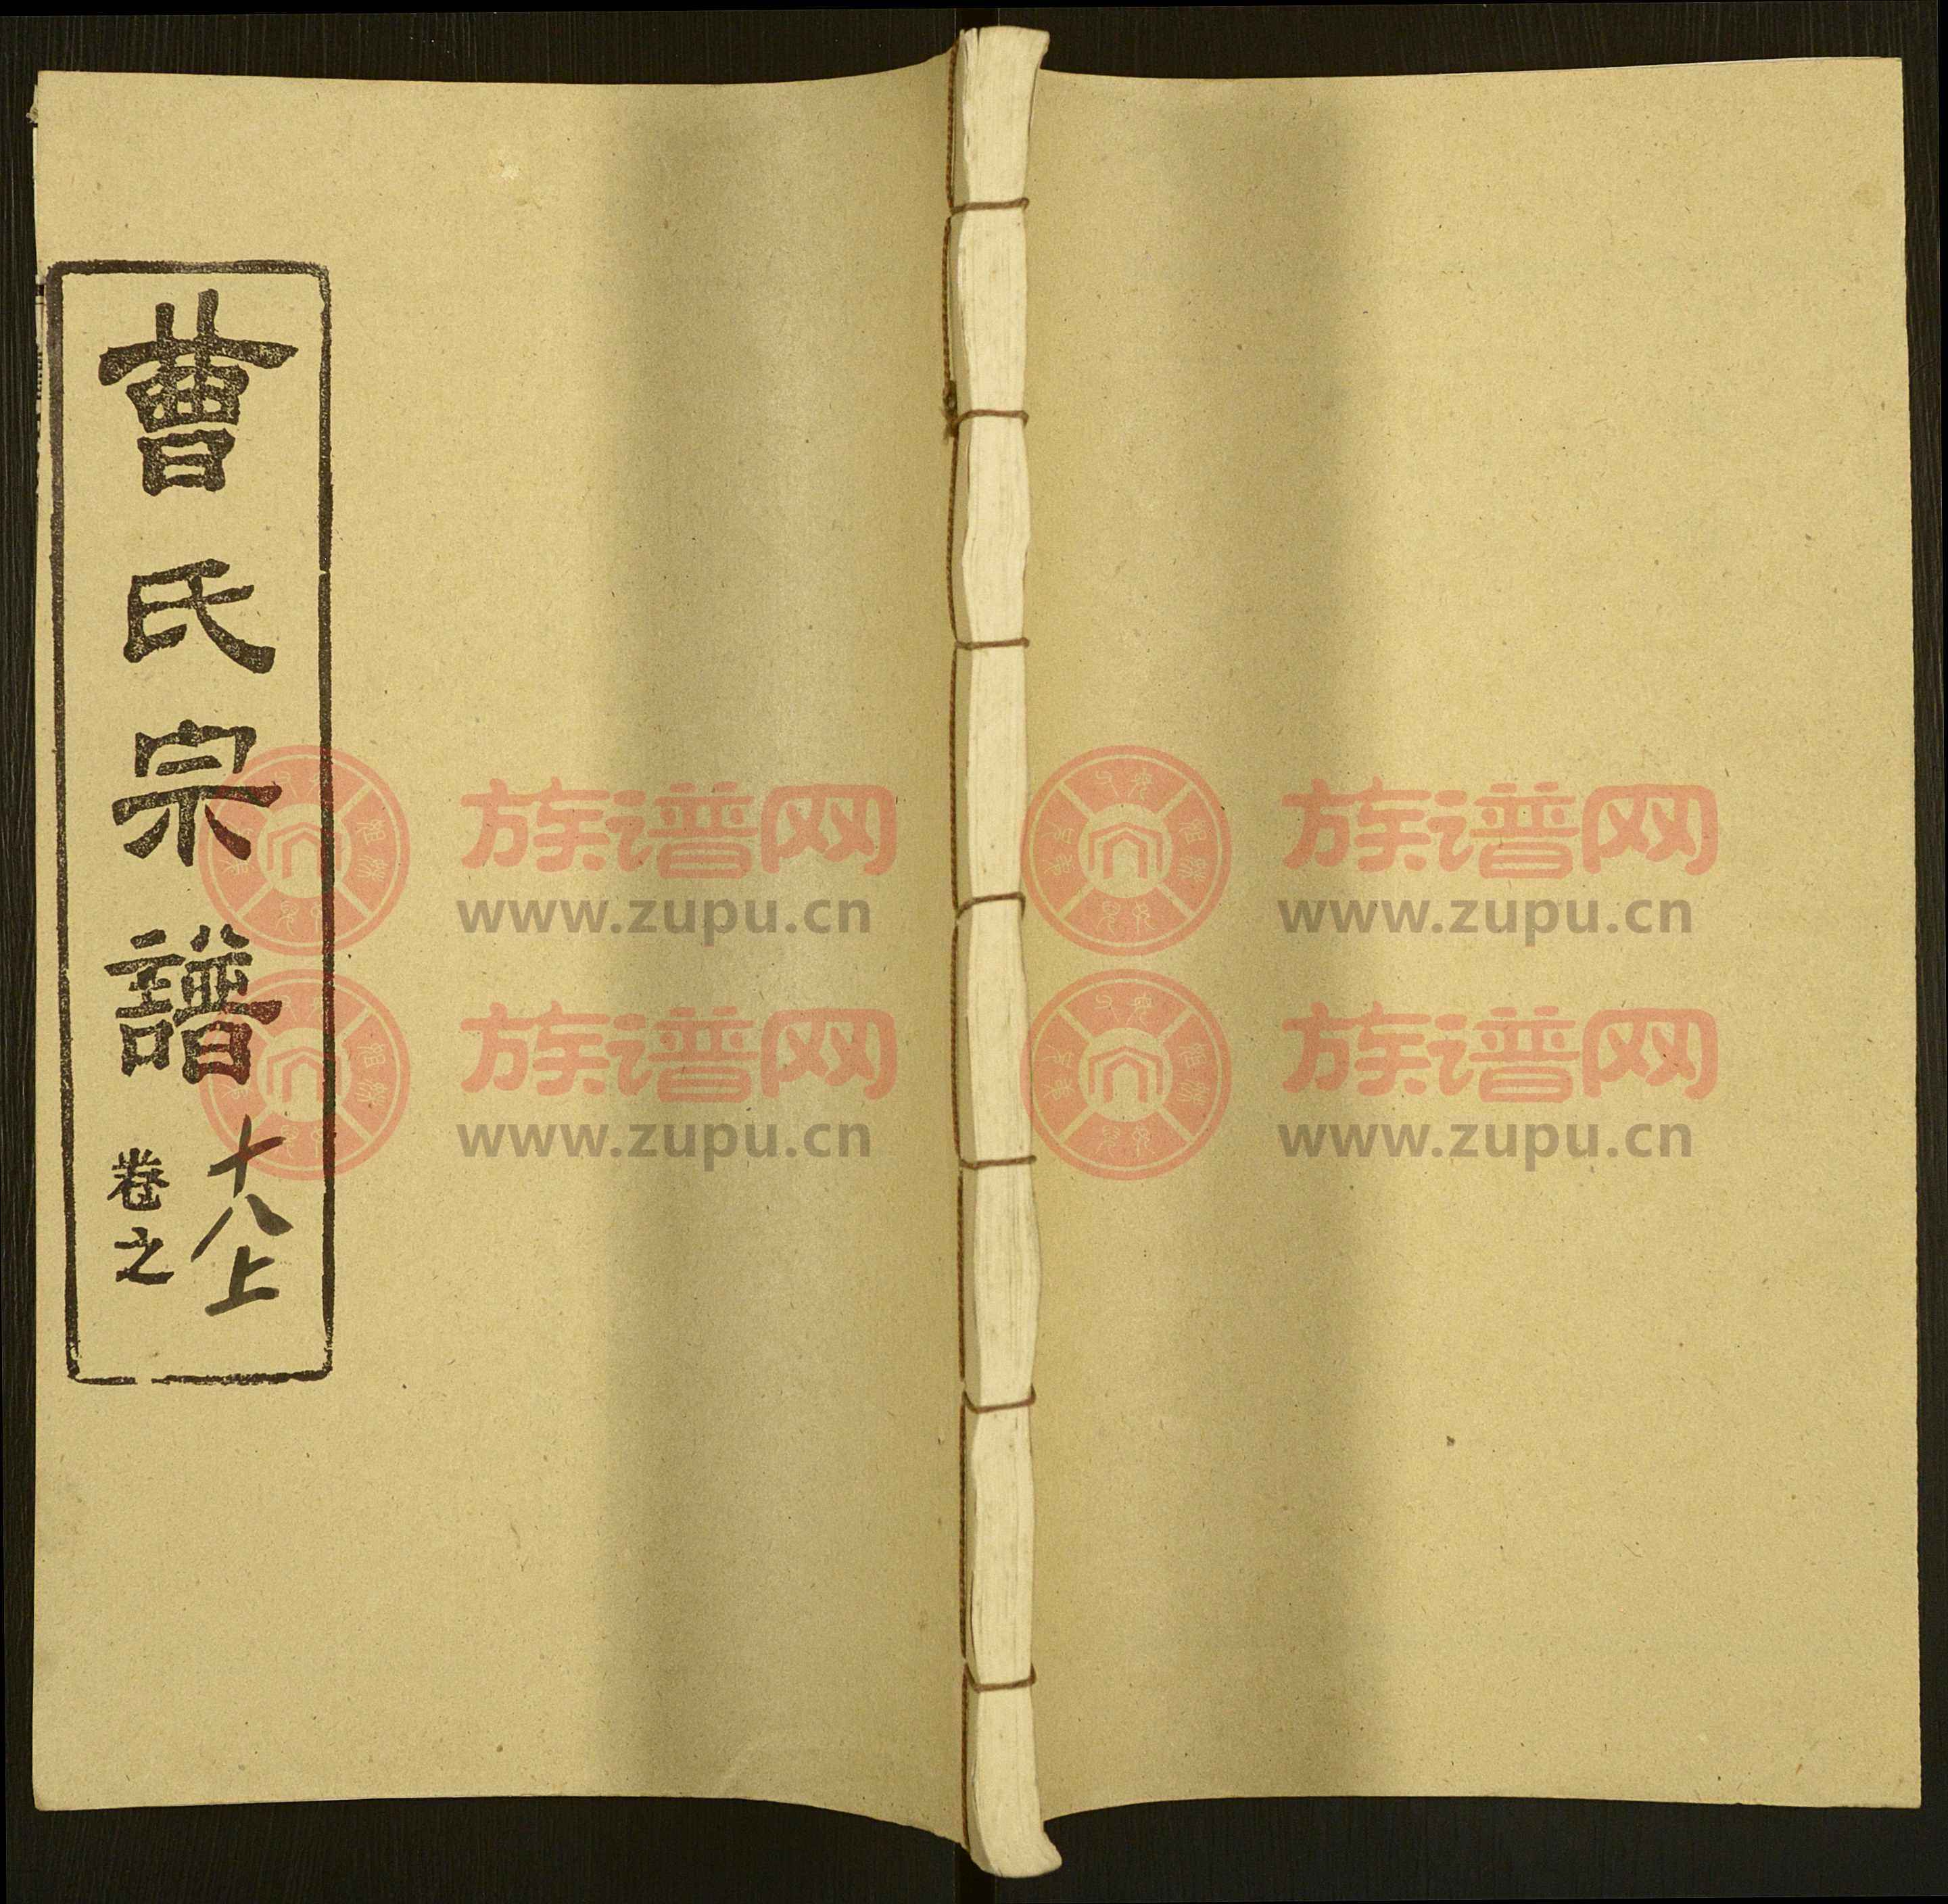 曹氏宗譜
卷之
十八上
族谱网
www.zupu.cn
族谱网
www.zupu.cn
族谱网
www.zupu.cn
族谱网
www.zupu.cn